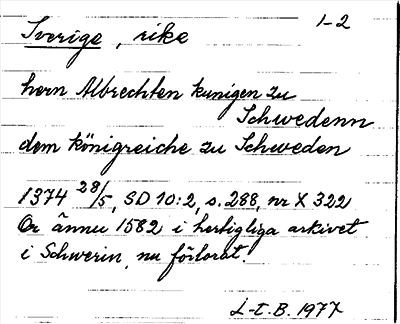 1-2
Sverige, rike
hern Albrechten kunigen zu
Schwedenn
dem königreiche zu Schweden
1374 28/5, SD 10:2, s. 288, nr X 322
Or ännu 1582 i hertigliga arkivet
i Schwerin, nu förlorat.
L-t. B. 1977